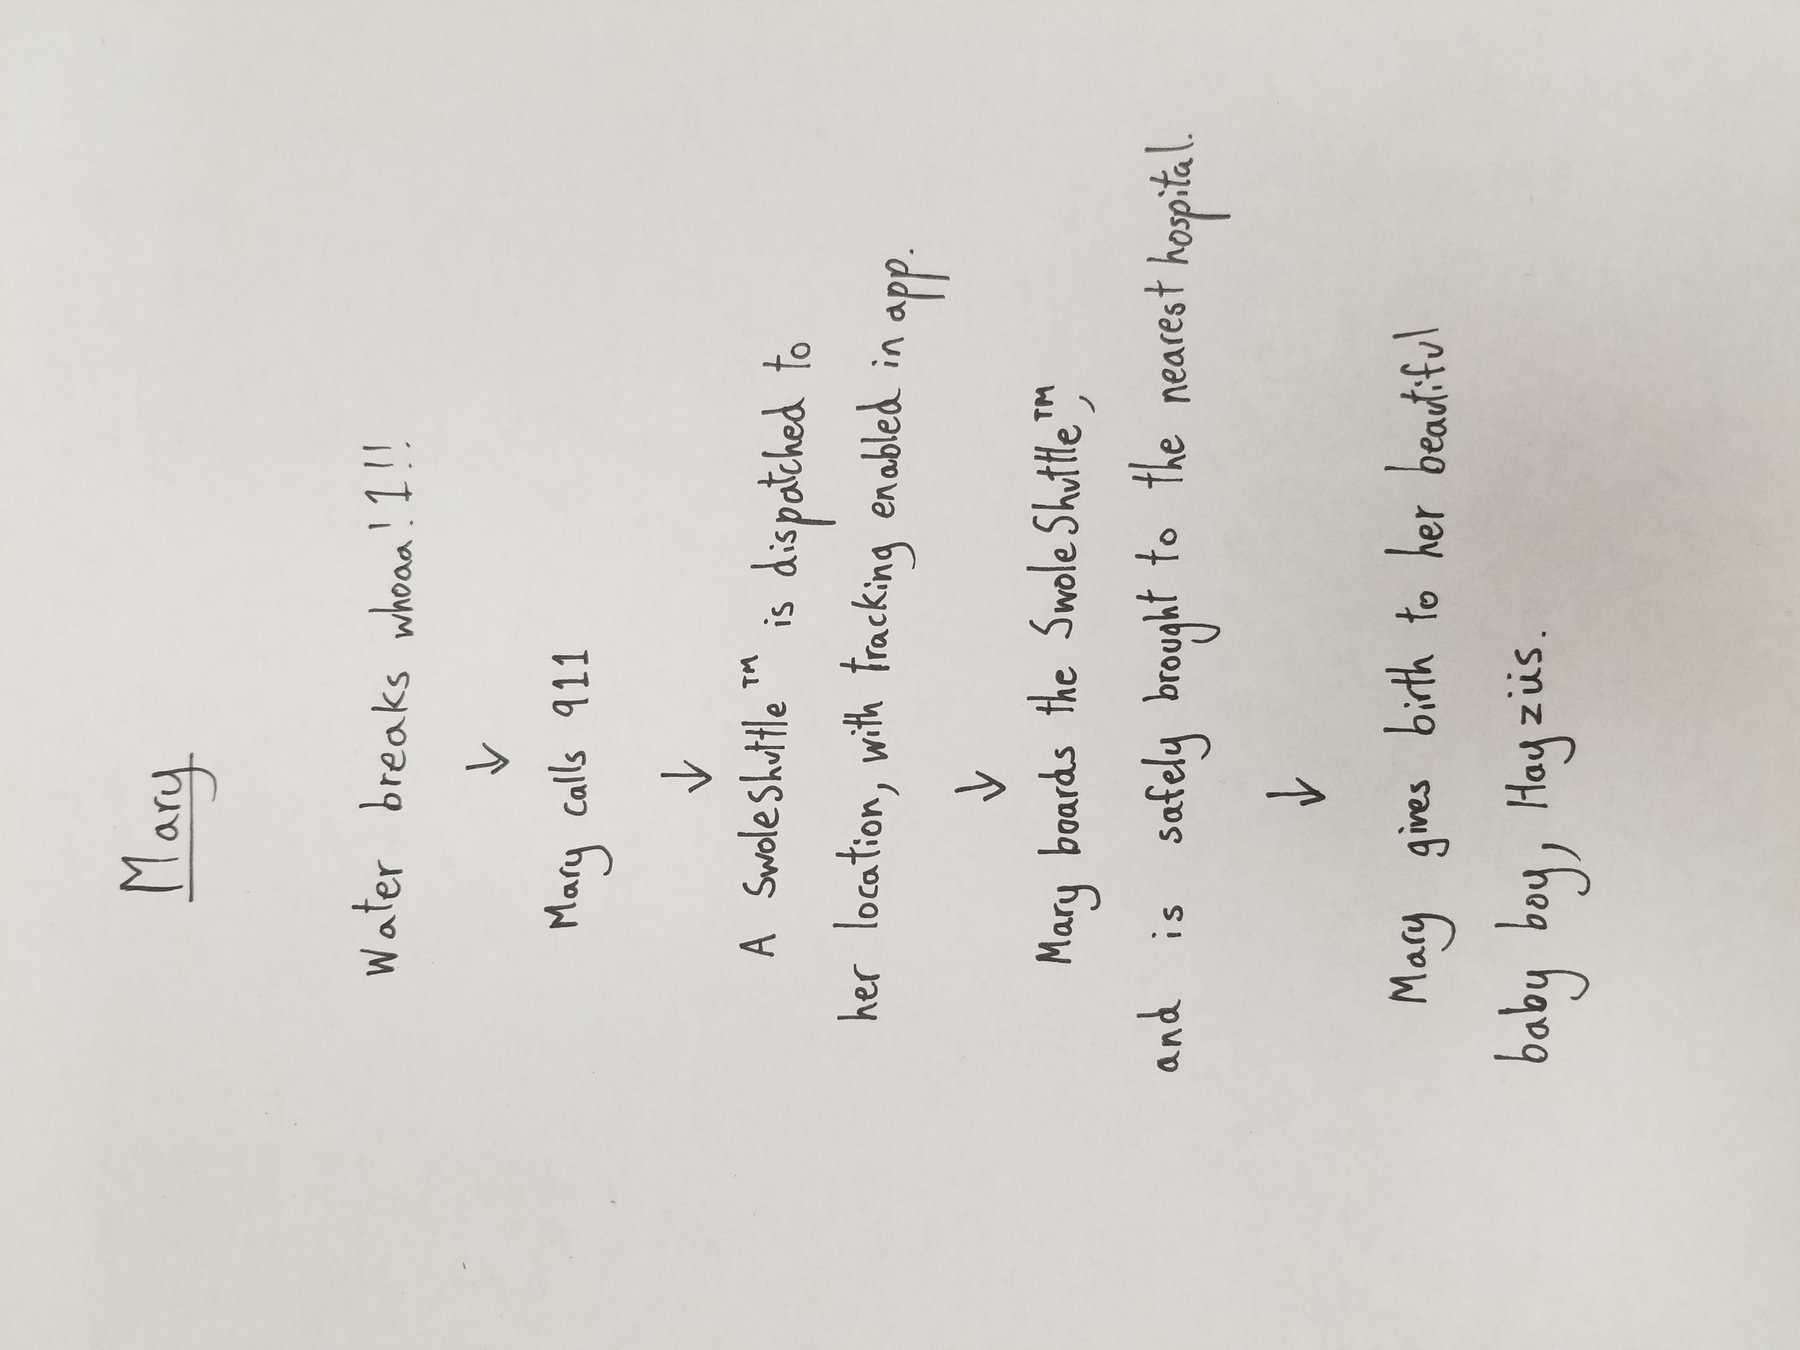 Mary
Water breaks whoaa!1!!
↓
Mary calls 911
↓
A SwoleShuttle™ is dispatched to
her location, with tracking enabled in app.
↓
Mary boards the SwoleShuttle™,
and is safely brought to the nearest hospital.
↓
Mary gives birth to her beautiful
baby boy, Hayzüs.